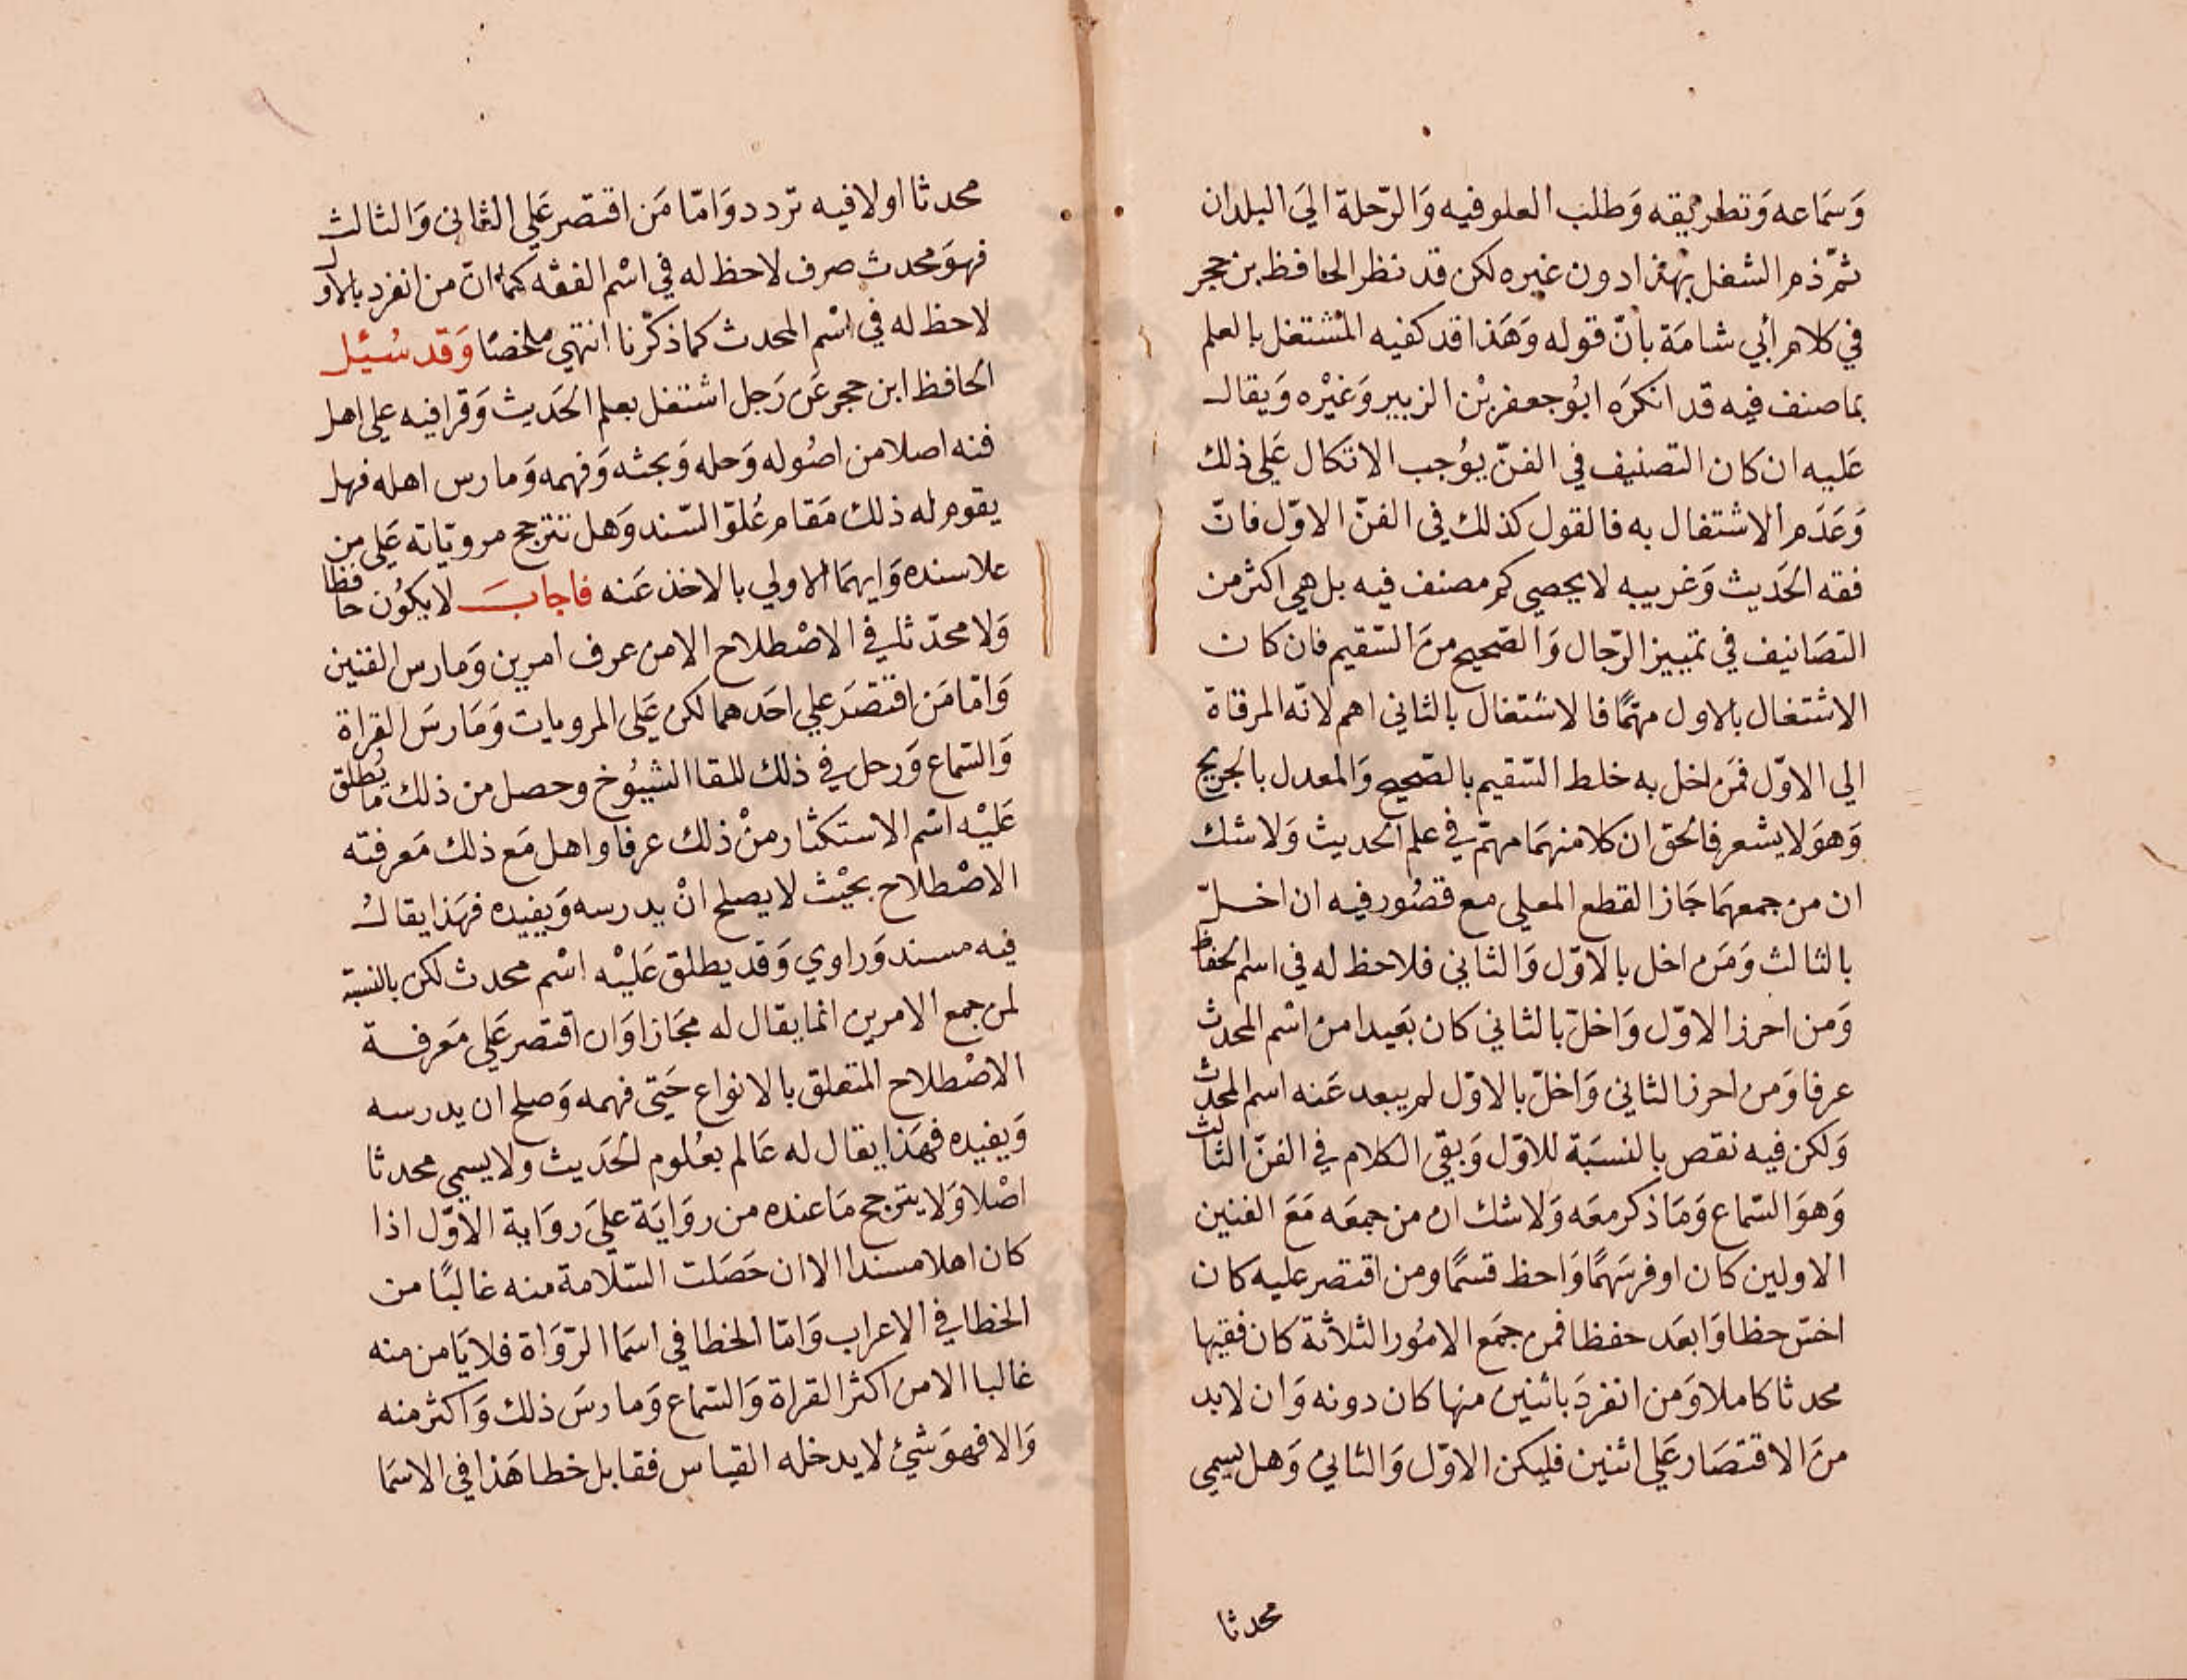 وَسَمَاعه وَتطريقه وَطلب العلو فيه وَالرّحلة اليَ البلدان
ثمّ ذم الشغل بهذا دون غيره لكن قد نظر الحافظ بن حجر
في كلام أبي شامَة بانّ قوله وَهَذا قد كفيه المشتغل بالعلم
بما صنف فيه قد انكرَه ابُو جعفر بْن الزبير وَغيْره وَيقال
عَليه ان كان التصنيف في الفنّ يوُجب الاتكال عَلي ذلك
وَعَدَم الاشتغال به فالقول كذلك في الفنّ الاوّل فانّ
فقه الحَديث وَغريبه لا يحصي كم مصنف فيه بل هي اكثر من
التصَانيف في تمييز الرّجال وَالصّحيح منَ السّقيم فان كان
الاشتغال بالاول مهمًّا فالاشتغال بالثاني اهم لانّه المرقاة
الي الاوّل فمَن اخل به خلط السّقيم بالصّحيح وَالمعدل بالجريح
وَهوَ لا يشعر فالحق ان كلا منهمَا مهمّ في علم الحديث وَلا شك
ان من جمعهمَا جَاز القطع المعلي مع قصُور فيه ان اخلّ
بالثالث وَمَن اخل بالاوّل وَالثاني فلا حظ له في اسم الحفاظ
وَمن احرز الاوّل وَاخلّ بالثاني كان بَعيدا من اسْم المحدث
عرفا وَمن احرز الثاني وَاخلّ بالاوّل لم يبعد عَنه اسم المحدث
وَلكن فيه نقص بالنسبَة للاوّل وَبقي الكلام في الفنّ الثالث
وَهوَ السّماع وَمَا ذكر معَه وَلا شك ان من جمعَه مَعَ الفنين
الاولين كان اوفر سَهمًا وَاحظ قسمًا ومن اقتصر عليه كان
اخسّ حظا وَابعَد حفظا فمن جمَع الامُور الثلاثة كان فقيها
محدثا كاملا وَمن انفردَ باثنين منها كان دونه وَان لا بد
منَ الاقتصَار عَلي اثنين فليكن الاوّل وَالثاني وَهل يسمي
محدثا
محدثا اولا فيه تردد وَامّا مَن اقتصر عَلي الثاني وَالثالث
فهوَ محدث صرف لا حظ له في اسْم الفقه كما انّ من انفرد بالاول
لا حظ له في اسْم المحدث كما ذكرْنا انتهي ملخصًا وَقد سُئِل
الحافظ ابن حجر عَن رَجل اشتغل بعلم الحَديث وَقرا فيه علي اهل
فنه اصلا من اصُوله وَحله وَبحثه وَفهمه وَمارس اهله فهل
يقوم له ذلك مَقام عُلوّ السّند وَهل تترجح مروياته عَلي من
علا سنده وَايهمَا الاولي بالاخذ عَنه فاجابَ لا يكوُن حافظا
وَلا محدّثا في الاصْطلاح الا من عرف امرين وَمارس الفنين
وَامّا مَن اقتصَر علي احَدهما لكن عَلي المرويات وَمَارسَ القراة
وَالسّماع وَرحل في ذلك للقا الشيُوخ وحصل من ذلك ما يُطلق
عَليْه اسْم الاستكثار منْ ذلك عرفا واهل مَع ذلك مَعرفته
الاصْطلاح بحيْث لا يصلح انْ يدرسه وَيفيده فهَذا يقالُ
فيه مسند وَراوي وَقد يطلق عَليْه اسْم محدث لكن بالنسبة
لمن جمع الامرين انما يقال له مجَازا وَان اقتصر عَلي مَعرفة
الاصْطلاح المتعلق بالانواع حَتي فهمه وَصلح ان يدرسه
وَيفيده فهَذا يقال له عَالم بعُلوم الحَديث ولا يسمي محدثا
اصْلا وَلا يترجح مَا عنده من روَايَة عليَ روَاية الاوّل اذا
كان اهلا مسندا الا ان حَصَلت السّلامة منه غالبًا من
الخطا في الاعراب وَامّا الخطا في اسمَا الرّوَاة فلا يَامن منه
غالبا الا من اكثر القراة وَالسّماع وَمارسَ ذلك وَاكثر منه
وَالا فهوَ شيْئ لا يدخله القياس فقابل خطا هَذا في الاسمَا